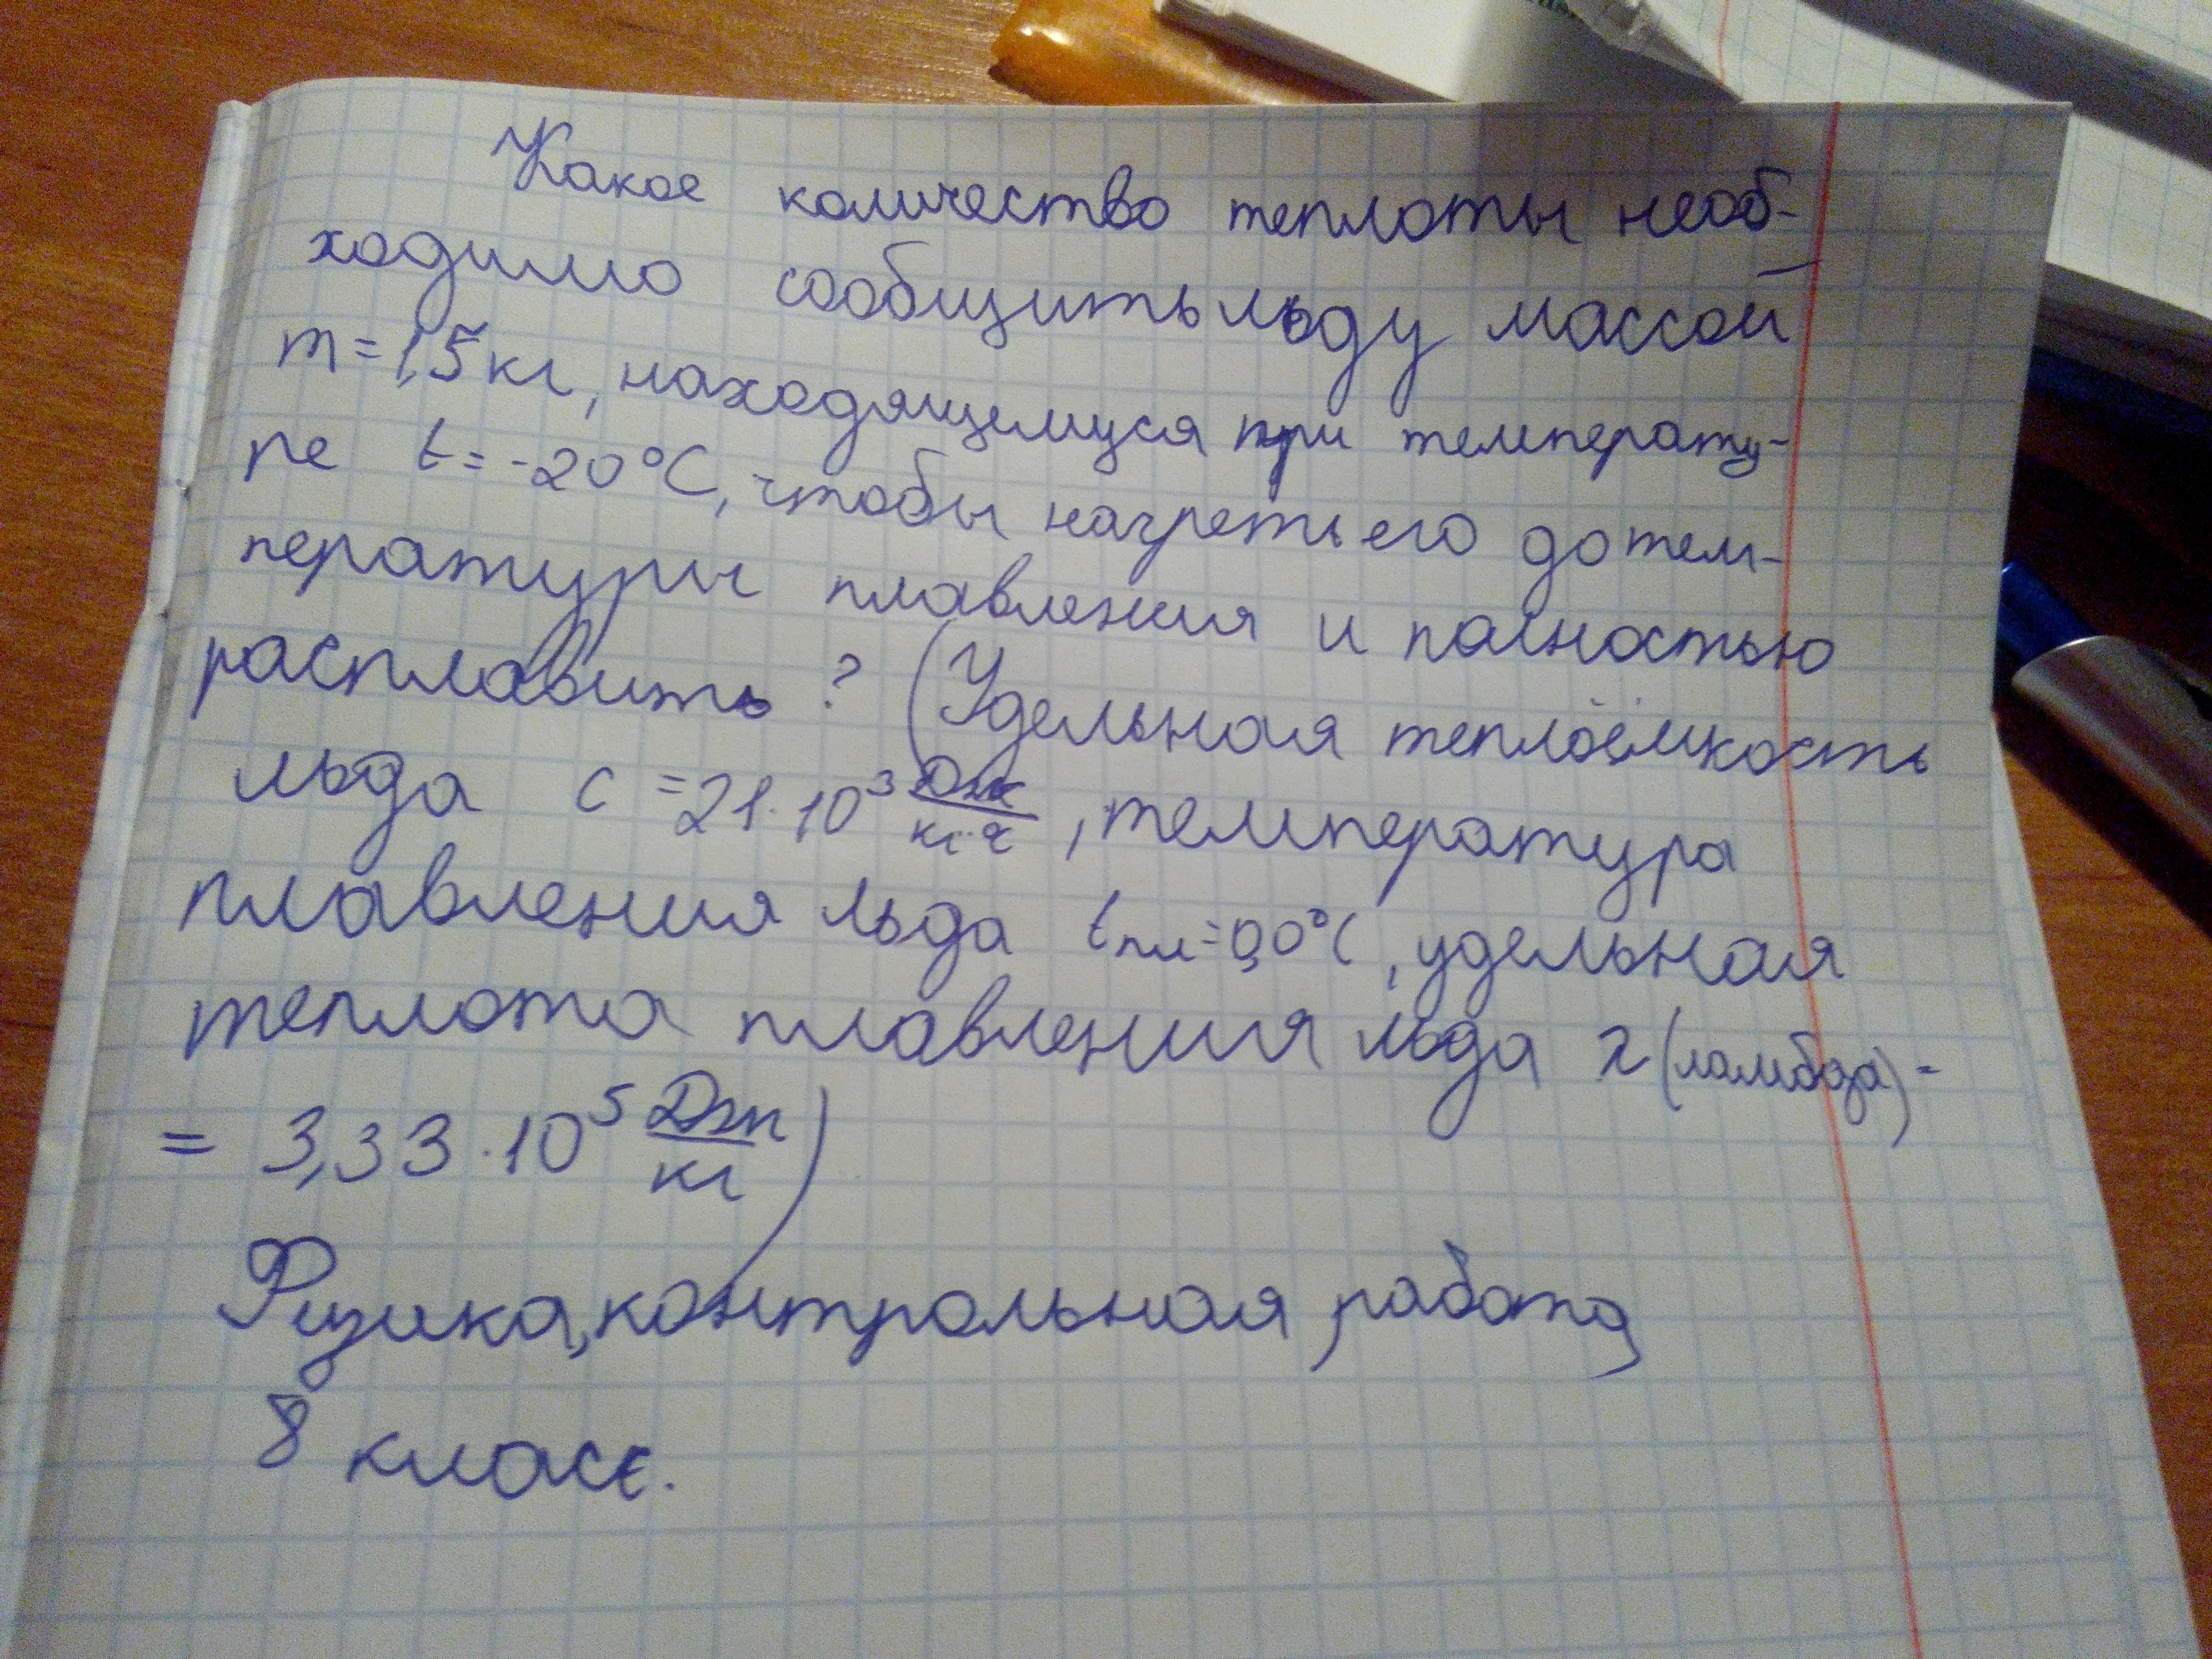 Какое количество теплоты необ-
ходимо сообщить льду массой
m=1,5 кг, находящемуся при температу-
ре t=-20°C, чтобы нагреть его до тем-
пературы плавления и полностью
расплавить? (Удельная теплоёмкость
льда c=21·10³ Дж/кг·°C, температура
плавления льда tпл=0,0°C, удельная
теплота плавления льда λ(ламбда)-
= 3,33·10⁵ Дж/кг)
Физика, контрольная работа,
8 класс.